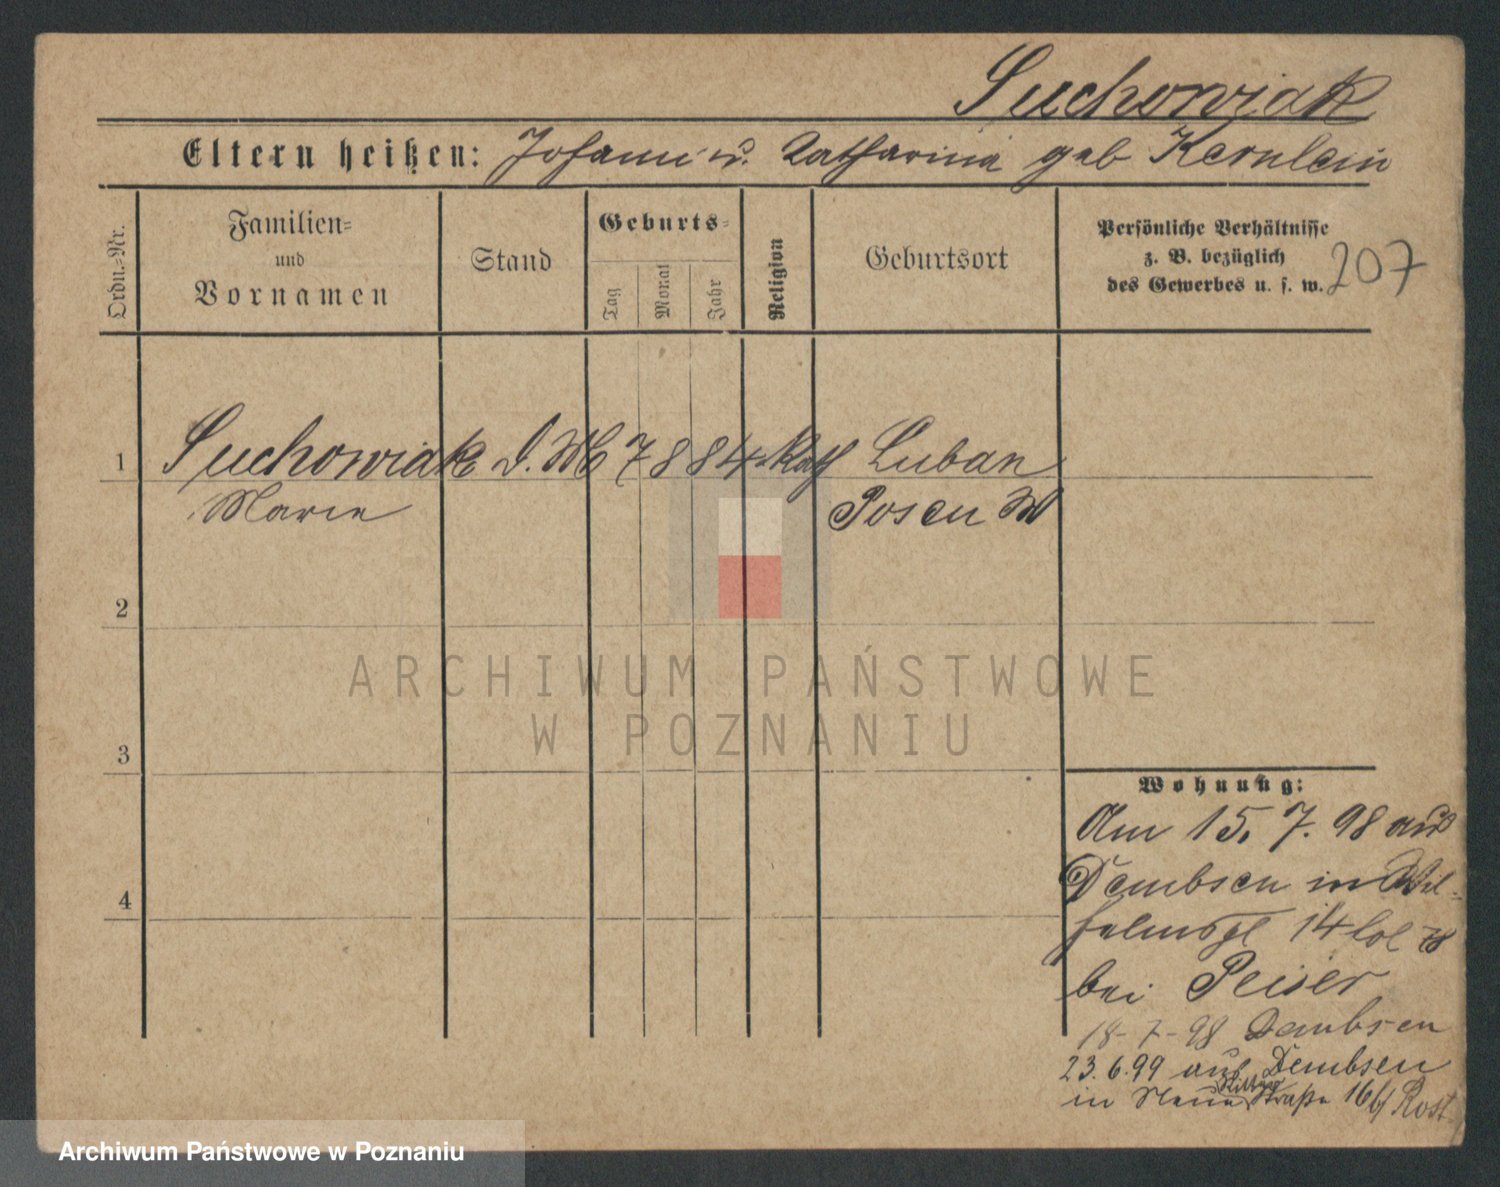 Suchowiak
Eltern heißen: Johann u. Katharina geb Kernlein
Ordn.=Nr.
Familien=
und
Vornamen
Stand
Geburts=
Tag
Monat
Jahr
Religion
Geburtsort
Persönliche Verhältnisse
z. B. bezüglich
des Gewerbes u. s. w.
207
1 Suchowiak D. M 7 8 84 Kath Luban
Marie Posen W
2
ARCHIWUM PAŃSTWOWE
W POZNANIU
3
Wohnung:
Am 15. 7. 98 aus
Dembsen in Wil=
helmspl 14 lol 78
bei Peiser
18-7-98 Dembsen
4
23.6.99 aus Dembsen
in Neue Straße 16 b/ Rost
Archiwum Państwowe w Poznaniu